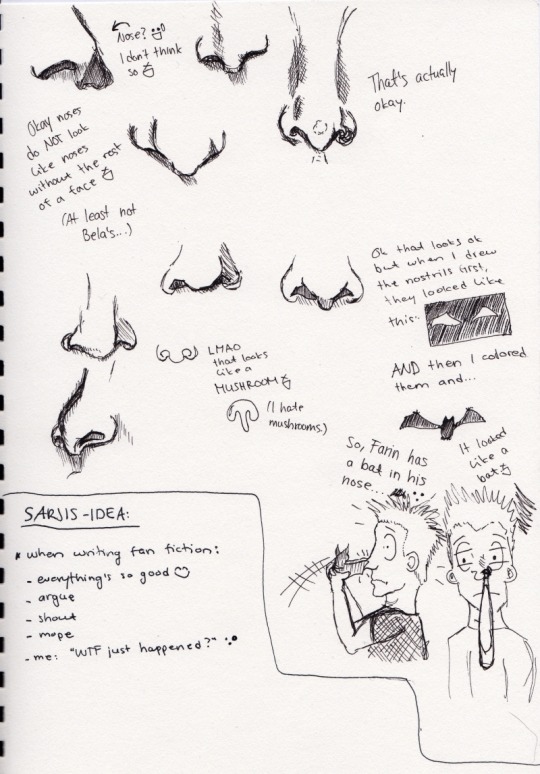 Nose?
I don't think
so
That's actually
okay.
Okay noses
do NOT look
like noses
without the rest
of a face
(At least not
Bela's...)
Ok that looks ok
but when I drew
the nostrils first,
they looked like
this:
LMAO
that looks
like a
MUSHROOM
(I hate
mushrooms.)
AND then I colored
them and...
It looked
like a
bat
So, Farin has
a bat in his
nose.....
SARJIS-IDEA:
* when writing fan fiction:
- everything's so good
- argue
- shout
- mope
- me: "WTF just happened?"